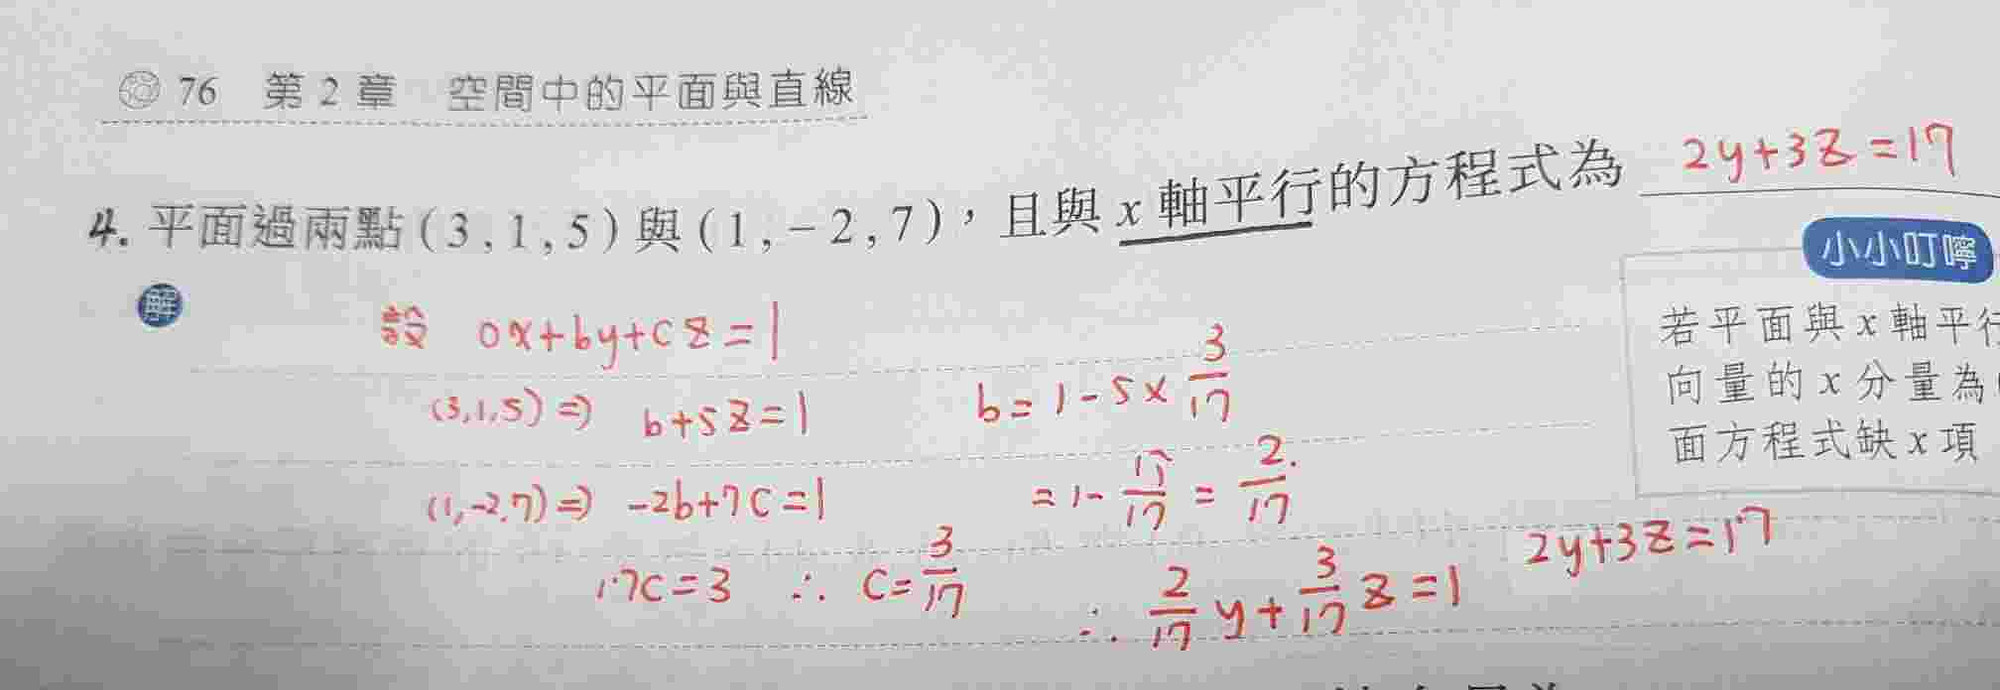 76 第 2 章 空間中的平面與直線
4. 平面過兩點 ( 3 , 1 , 5 ) 與 ( 1 , – 2 , 7 ) ，且與 x 軸平行的方程式為 2y+3z=17
解
設 0x+by+cz=1
(3,1,5)⇒ b+5z=1
(1,-2,7)⇒ -2b+7c=1
17c=3 ∴ c=3/17
b=1-5×3/17
=1-15/17=2/17
∴ 2/17 y+3/17 z=1 2y+3z=17
小小叮嚀
若平面與 x 軸平行
向量的 x 分量為
面方程式缺 x 項